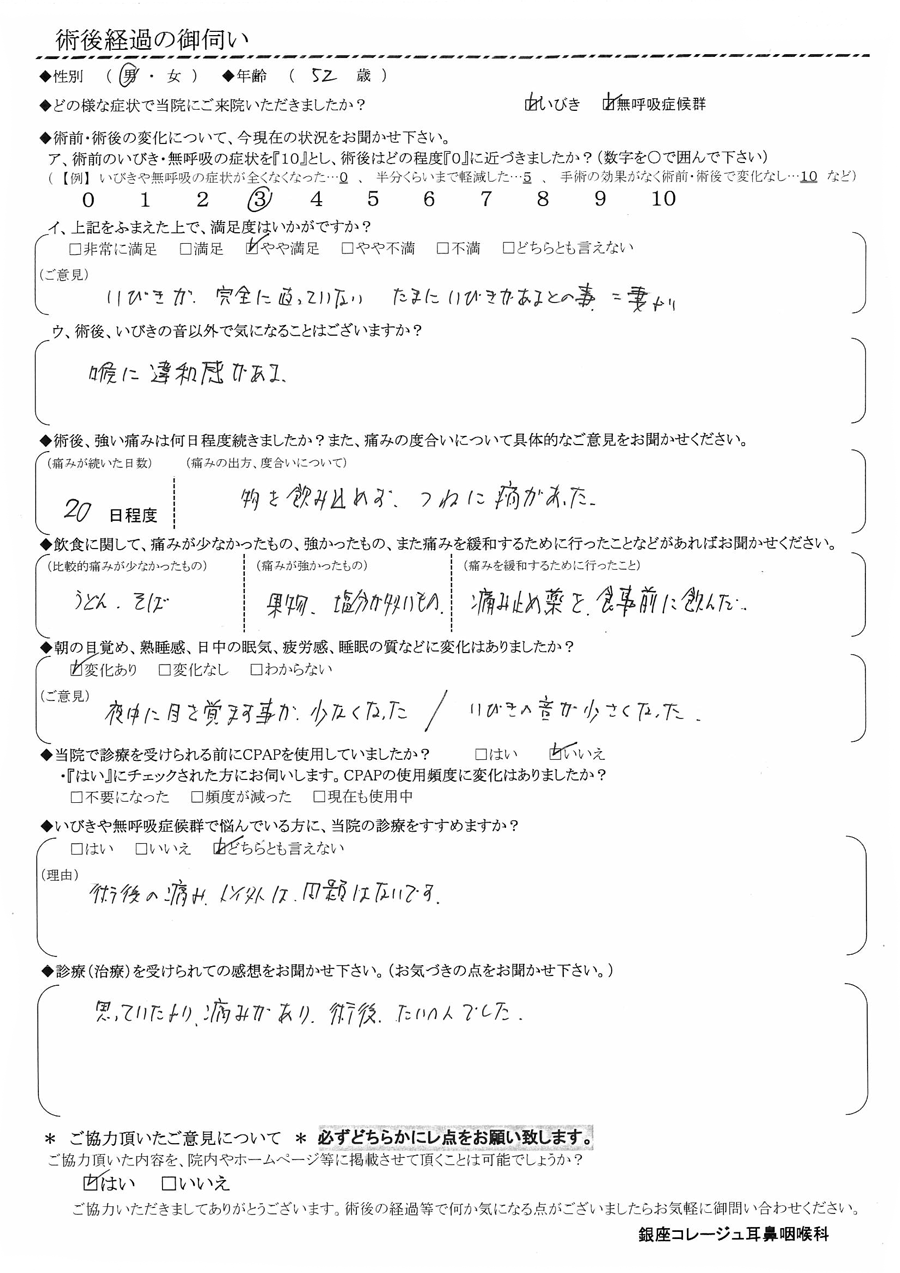 術後経過の御伺い
◆性別 ( 男 ・ 女 ) ◆年齢 ( 52 歳 )
◆どの様な症状で当院にご来院いただきましたか? ☑いびき ☑無呼吸症候群
◆術前・術後の変化について、今現在の状況をお聞かせ下さい。
ア、術前のいびき・無呼吸の症状を『10』とし、術後はどの程度『0』に近づきましたか?(数字を○で囲んで下さい)
(【例】いびきや無呼吸の症状が全くなくなった…0 、 半分くらいまで軽減した…5 、 手術の効果がなく術前・術後で変化なし…10 など)
0 1 2 3 4 5 6 7 8 9 10
イ、上記をふまえた上で、満足度はいかがですか?
□非常に満足 □満足 ☑やや満足 □やや不満 □不満 □どちらとも言えない
(ご意見)
いびきが、完全に直っていない たまにいびきがあるとの事 = 妻より
ウ、術後、いびきの音以外で気になることはございますか?
喉に違和感がある、
◆術後、強い痛みは何日程度続きましたか?また、痛みの度合いについて具体的なご意見をお聞かせください。
(痛みが続いた日数) (痛みの出方、度合いについて)
20 日程度 物を飲み込めず、つねに痛があった。
◆飲食に関して、痛みが少なかったもの、強かったもの、また痛みを緩和するために行ったことなどがあればお聞かせください。
(比較的痛みが少なかったもの) (痛みが強かったもの) (痛みを緩和するために行ったこと)
うどん、そば 果物、塩分が多いもの、 痛み止め薬を、食事前に飲んだ。
◆朝の目覚め、熟睡感、日中の眠気、疲労感、睡眠の質などに変化はありましたか?
☑変化あり □変化なし □わからない
(ご意見)
夜中に目を覚ます事が、少なくなった / いびきの音が小さくなった。
◆当院で診療を受けられる前にCPAPを使用していましたか? □はい ☑いいえ
・『はい』にチェックされた方にお伺いします。CPAPの使用頻度に変化はありましたか?
□不要になった □頻度が減った □現在も使用中
◆いびきや無呼吸症候群で悩んでいる方に、当院の診療をすすめますか?
□はい □いいえ ☑どちらとも言えない
(理由)
術後の痛み、以外は、問題はないです。
◆診療(治療)を受けられての感想をお聞かせ下さい。(お気づきの点をお聞かせ下さい。)
思っていたより、痛みがあり、術後、たいへんでした。
* ご協力頂いたご意見について * 必ずどちらかにレ点をお願い致します。
ご協力頂いた内容を、院内やホームページ等に掲載させて頂くことは可能でしょうか?
☑はい □いいえ
ご協力いただきましてありがとうございます。術後の経過等で何か気になる点がございましたらお気軽に御問い合わせください。
銀座コレージュ耳鼻咽喉科